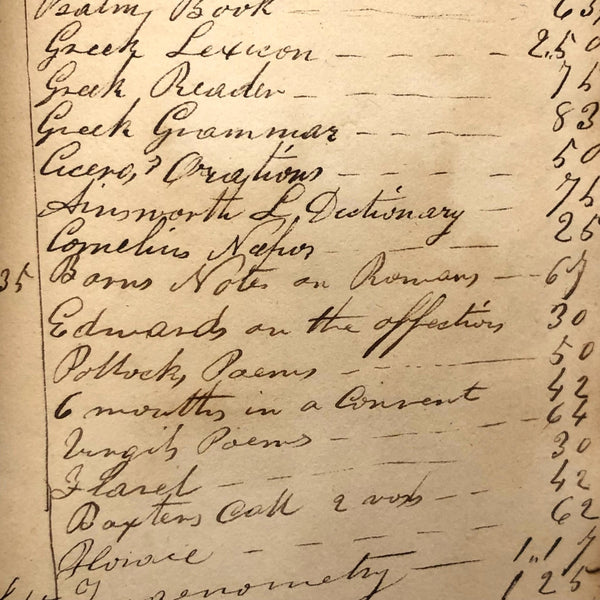 Psalm Book — 63
Greek Lexicon — — — — 2.50
Greek Reader — — — — 75
Greek Grammar — — — — 83
Cicero,s Orations — — — — 50
Ainsworth L. Dictionary — 75
Cornelius Nepos — — — 25
35 Barns Notes on Romans — 67
Edwards on the affections 30
Pollocks Poems — — — 50
6 months in a Convent 42
Virgils Poems — — — — 64
Flavel — — — 30
Baxters Call 2 vols — — 42
Horace — — — — 62
1.17
1 25